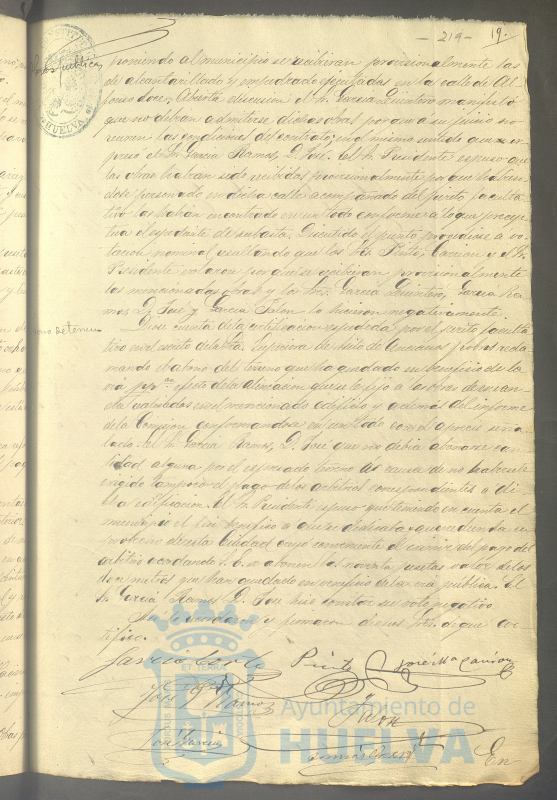 - 219 -
19.
Obras públicas
poniendo al municipio se recibiran provisionalmente las
de alcantarillado y empedrado ejecutadas en la calle de Al
fonso doce. Abierta discusion el Sr. Garcia Quintero manifestó
que no debian admitirse dichas obras porque a su juicio no
reunen las condiciones del contrato; en el mismo sentido que se ex
presó el Sr. Garcia Ramos, D. José. El Sr. Presidente espuso que
las obras habian sido recibidas provisionalmente por que habien
dose personado en dicha calle acompañado del perito faculta
tivo las habian encontrado en un todo conforme a lo que precep
tua el espediente de subasta. Discutido el punto procediose a vo
tacion nominal resultando que los Sres. Pinto, Carrion y el Sr.
Presidente votaron por que se recibieran provisionalmente
las mencionadas obras y los Sres. Garcia Quintero, Garcia Ra
mos, D. José y Garcia Jalon lo hicieron negativamente.
Diose cuenta de la certificacion espedida por el perito faculta
tivo en el escrito de la Sra. Superiora del Asilo de Ancianos pobres recla
mando el abono del terreno que ha quedado en beneficio de la
via pca. efecto de la alineacion que se le fijo a las obras de
realizadas en el mencionado edificio y ademas del informe
de la Comision conformandose en un todo con el aprecio seña
lado. El Sr. Garcia Ramos, D. José que no debia abonarse can
tidad alguna por el espresado terreno a causa de no haberle
exigido tampoco el pago de los arbitrios correspondientes a di
cha edificacion. El Sr. Presidente espuso que teniendo en cuenta el
municipio el fin benefico a que se dedicaba
de esta Ciudad creyó conveniente el eximir del pago del
arbitrio acordando: Se abonen las noventa pesetas valor de los
doce metros que han quedado en beneficio de la via publica. El
Sr. Garcia Ramos D. José hizo constar su voto negativo.
Asi lo acordaron y firmaron dichos Sres. de que cer
tifico.
Garcia
Pinto
José Mª Carrion
José G. Ramos
José Garcia
En
HUELVA
Ayuntamiento de
HUELVA